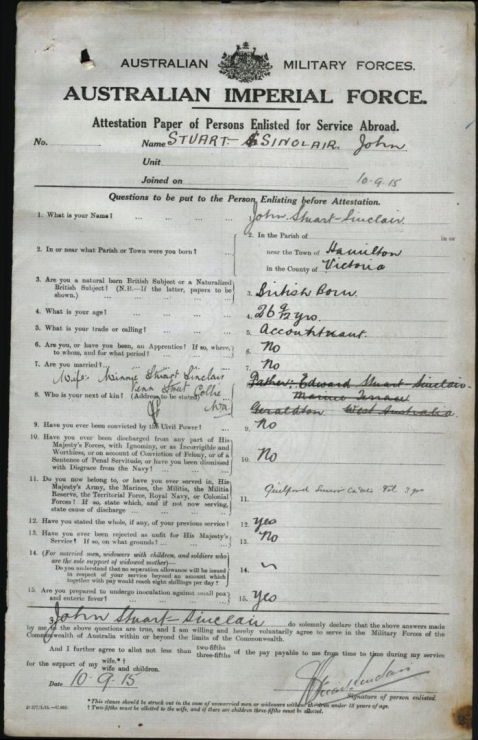 AUSTRALIAN MILITARY FORCES.
AUSTRALIAN IMPERIAL FORCE.
Attestation Paper of Persons Enlisted for Service Abroad.
No. Name STUART-SINCLAIR John
Unit
Joined on 10-9-15
Questions to be put to the Person Enlisting before Attestation.
1. What is your Name? ... ... ... John Stuart-Sinclair
2. In or near what Parish or Town were you born? ... 2. In the Parish of in or
near the Town of Hamilton
in the County of Victoria
3. Are you a natural born British Subject or a Naturalized British Subject? (N.B.—If the latter, papers to be shown.) 3. British Born
4. What is your age? ... 4. 26 9/12 yrs.
5. What is your trade or calling? ... 5. Accountant.
6. Are you, or have you been, an Apprentice? If so, where, to whom, and for what period? 6. No
7. Are you married? ... 7. No
Wife Minnie Stuart Sinclair
Collie
W.A.
8. Who is your next of kin? (Address to be stated) Father: Edward Stuart-Sinclair
Marine Terrace
Geraldton West Australia
9. Have you ever been convicted by the Civil Power? 9. No
10. Have you ever been discharged from any part of His Majesty's Forces, with Ignominy, or as Incorrigible and Worthless, or on account of Conviction of Felony, or of a Sentence of Penal Servitude, or have you been dismissed with Disgrace from the Navy? 10. No
11. Do you now belong to, or have you ever served in, His Majesty's Army, the Marines, the Militia, the Militia Reserve, the Territorial Force, Royal Navy, or Colonial Forces? If so, state which, and if not now serving, state cause of discharge ... 11. Guildford Senior Cadets 3 yrs
12. Have you stated the whole, if any, of your previous service? 12. Yes
13. Have you ever been rejected as unfit for His Majesty's Service? If so, on what grounds? 13. No
14. (For married men, widowers with children, and soldiers who are the sole support of widowed mother)—
Do you understand that no separation allowance will be issued in respect of your service beyond an amount which together with pay would reach eight shillings per day? 14.
15. Are you prepared to undergo inoculation against small pox and enteric fever? 15. Yes
I, John Stuart-Sinclair do solemnly declare that the above answers made
by me to the above questions are true, and I am willing and hereby voluntarily agree to serve in the Military Forces of the
Commonwealth of Australia within or beyond the limits of the Commonwealth.
And I further agree to allot not less than two-fifths three-fifths of the pay payable to me from time to time during my service
for the support of my wife.*† wife and children.
Date 10.9.15 Stuart Sinclair
Signature of person enlisted.
*This clause should be struck out in the case of unmarried men or widowers without children under 18 years of age.
†Two-fifths must be allotted to the wife, and if there are children three-fifths must be allotted.